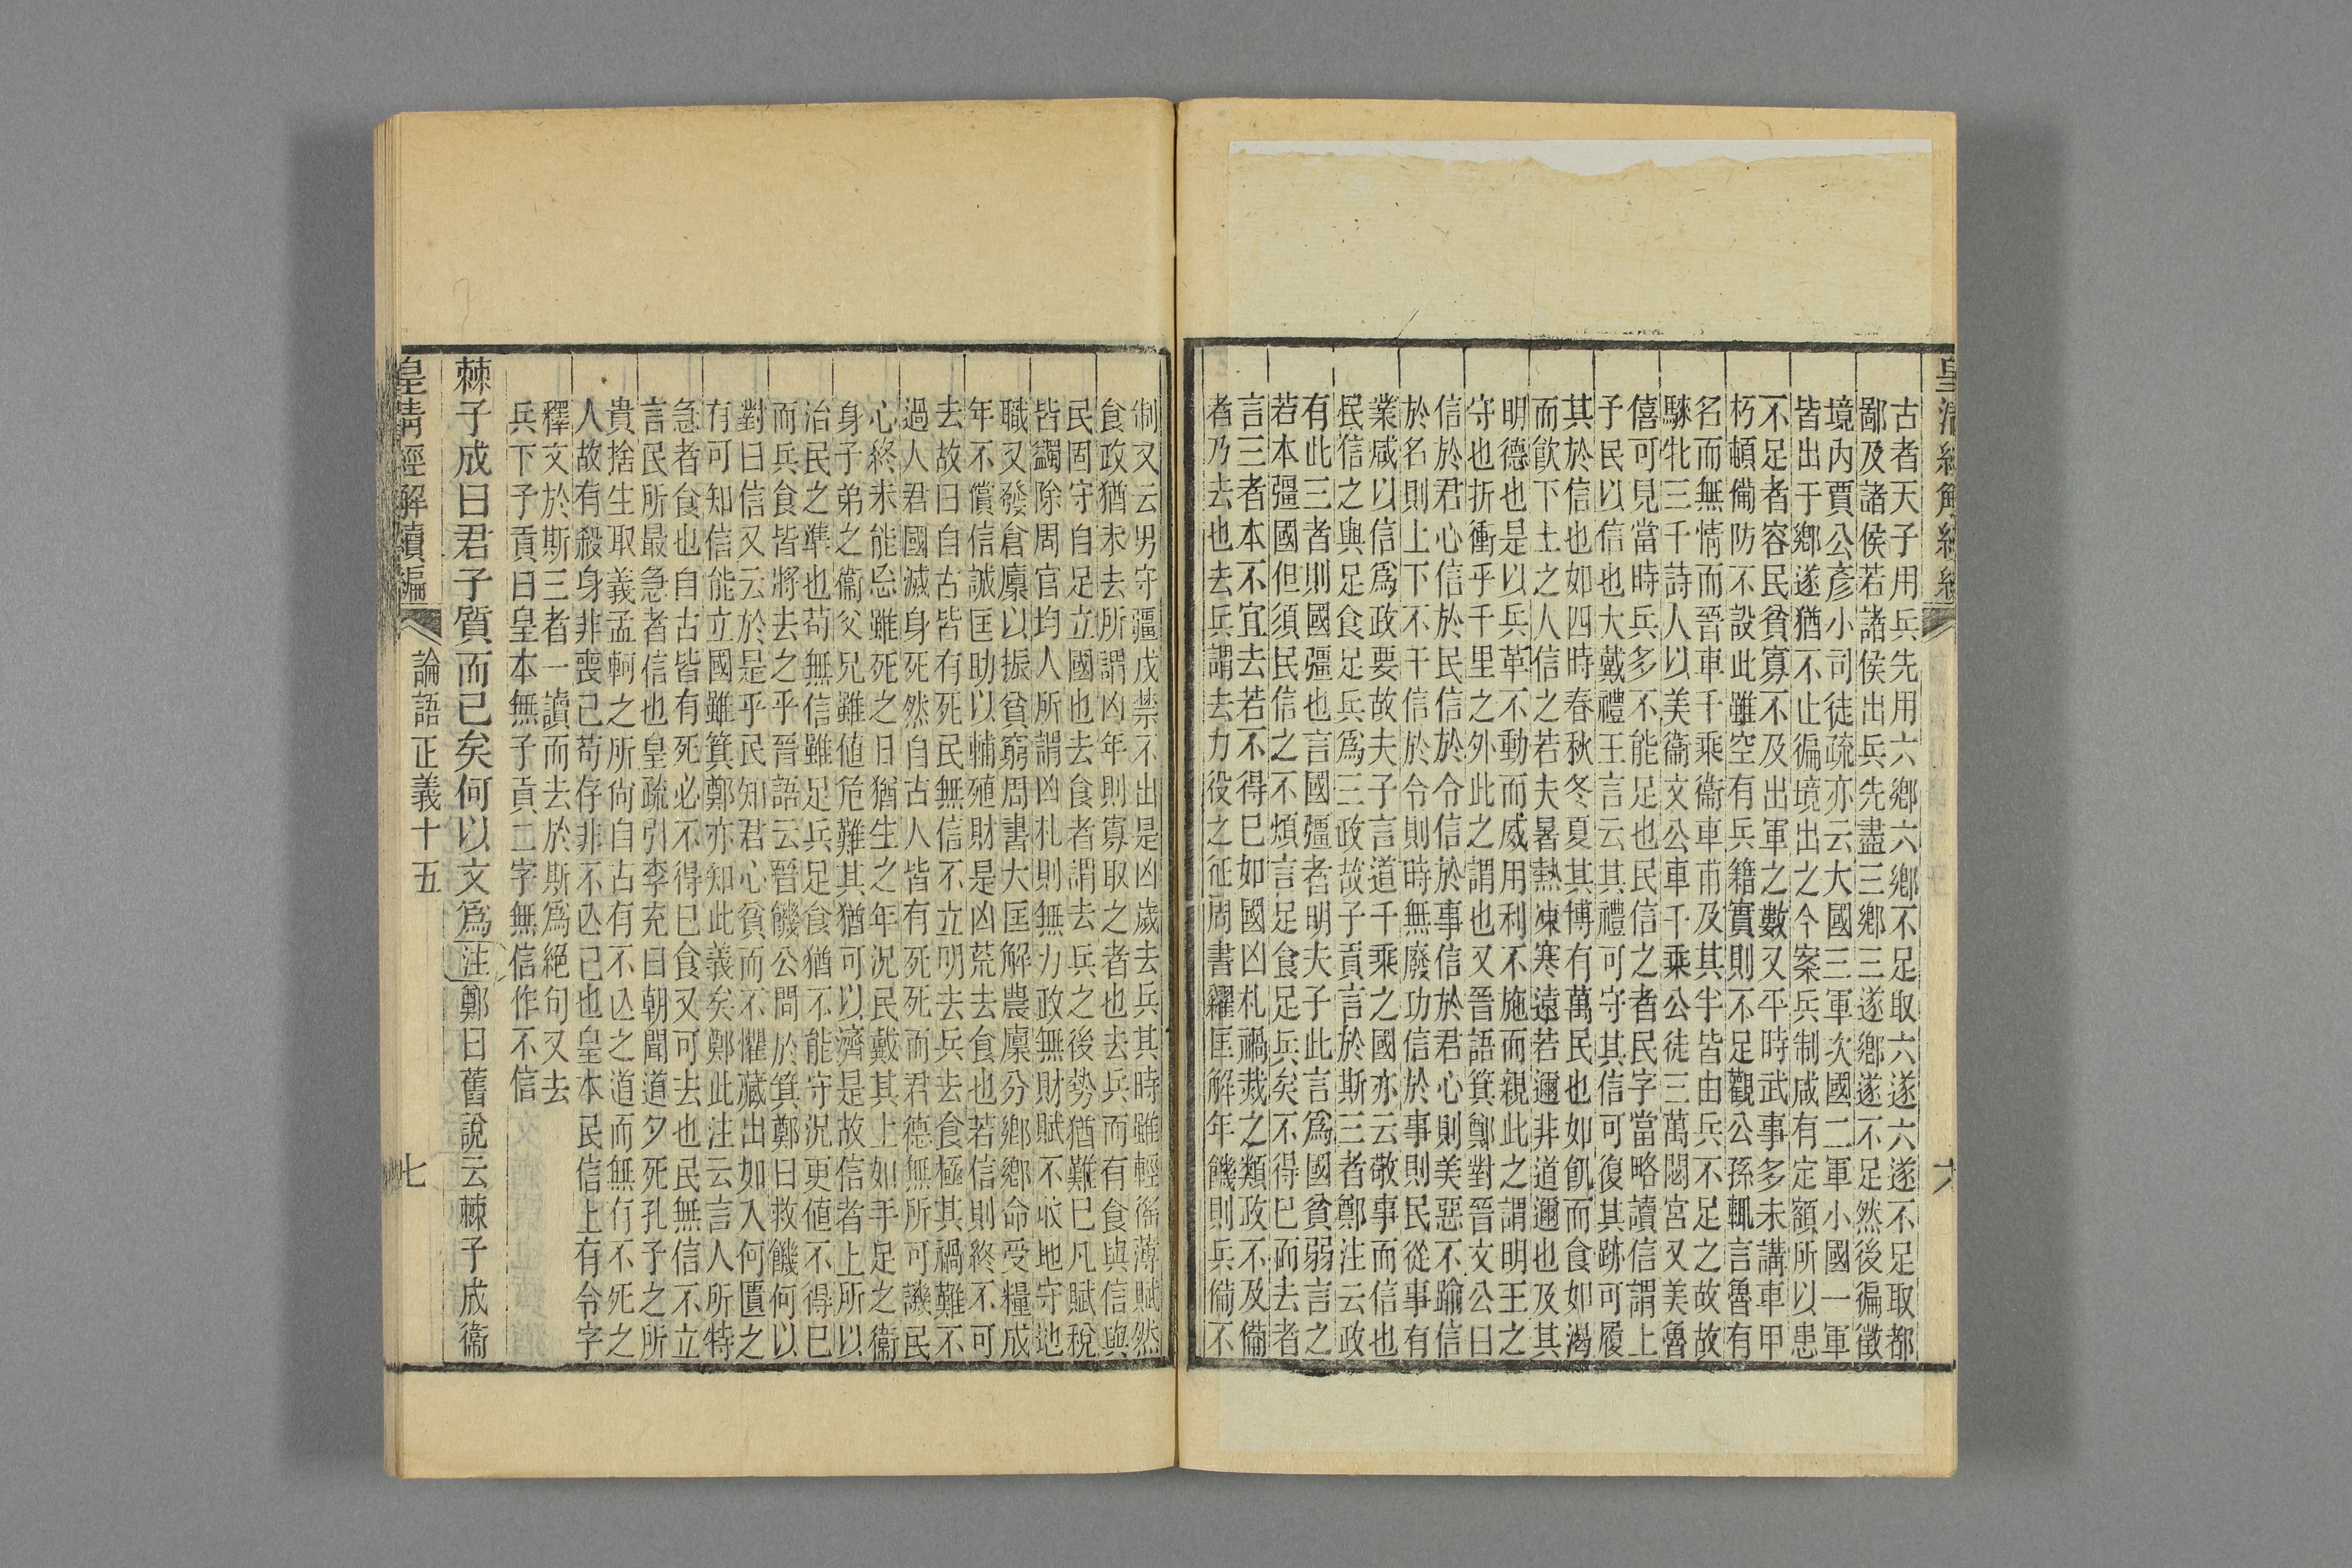 古者天子用兵先用六鄉六鄉不足取六遂六遂不足取都
鄙及諸侯若諸侯出兵先盡三鄉三遂鄉遂不足然後徧徵
境內賈公彥小司徒疏亦云大國三軍次國二軍小國一軍
皆出于鄉遂猶不止徧境出之今案兵制咸有定額所以患
不足者容民貧寡不及出軍之數又平時武事多未講車甲
朽頓備防不設此雖空有兵籍實則不足觀公孫輒言魯有
名而無情而晉車千乘衞車甫及其半皆由兵不足之故故
騋牝三千詩人以美衞文公車千乘公徒三萬閟宮又美魯
僖可見當時兵多不能足也民信之者民字當略讀信謂上
予民以信也大戴禮王言云其禮可守其信可復其跡可履
其於信也如四時春秋冬夏其博有萬民也如飢而食如渴
而飮下土之人信之若夫暑熱凍寒遠若邇非道邇也及其
明德也是以兵革不動而威用利不施而親此之謂明王之
守也折衝乎千里之外此之謂也又晉語箕鄭對晉文公曰
信於君心信於民信於令信於事信於君心則美惡不踰信
於名則上下不干信於令則時無廢功信於事則民從事有
業咸以信爲政要故夫子言道千乘之國亦云敬事而信也
民信之與足食足兵爲三政故子貢言於斯三者鄭注云政
有此三者則國彊也言國彊者明夫子此言爲國貧弱言之
若本彊國但須民信之不煩言足食足兵矣不得已而去者
言三者本不宜去若不得已如國凶札禍烖之類政不及備
者乃去也去兵謂去力役之征周書糴匡解年饑則兵備不
制又云男守疆戍禁不出是凶歲去兵其時雖輕徭薄賦然
食政猶未去所謂凶年則寡取之者也去兵而有食與信與
民固守自足立國也去食者謂去兵之後勢猶難已凡賦稅
皆蠲除周官均人所謂凶札則無力政無財賦不收地守地
職又發倉廩以振貧窮周書大匡解農廩分鄉鄉命受糧成
年不償信誠匡助以輔殖財是凶荒去食也若信則終不可
去故曰自古皆有死民無信不立明去兵去食極其禍難不
過人君國滅身死然自古人皆有死死而君德無所可譏民
心終未能忘雖死之日猶生之年況民戴其上如手足之衞
身子弟之衞父兄雖値危難其猶可以濟是故信者上所以
治民之準也苟無信雖足兵足食猶不能守況更値不得已
而兵食皆將去之乎晉語云晉饑公問於箕鄭曰救饑何以
對曰信又云於是乎民知君心貧而不懼藏出如入何匱之
有可知信能立國雖箕鄭亦知此義矣鄭此注云言人所特
急者食也自古皆有死必不得已食又可去也民無信不立
言民所最急者信也皇疏引李充曰朝聞道夕死孔子之所
貴捨生取義孟軻之所尙自古有不亾之道而無有不死之
人故有殺身非喪己苟存非不亾己也皇本民信上有令字
釋文於斯三者一讀而去於斯爲絕句又去
兵下子貢曰皇本無子貢二字無信作不信
棘子成曰君子質而已矣何以文爲注鄭曰舊說云棘子成衞
皇清經解續編
論語正義十五
七